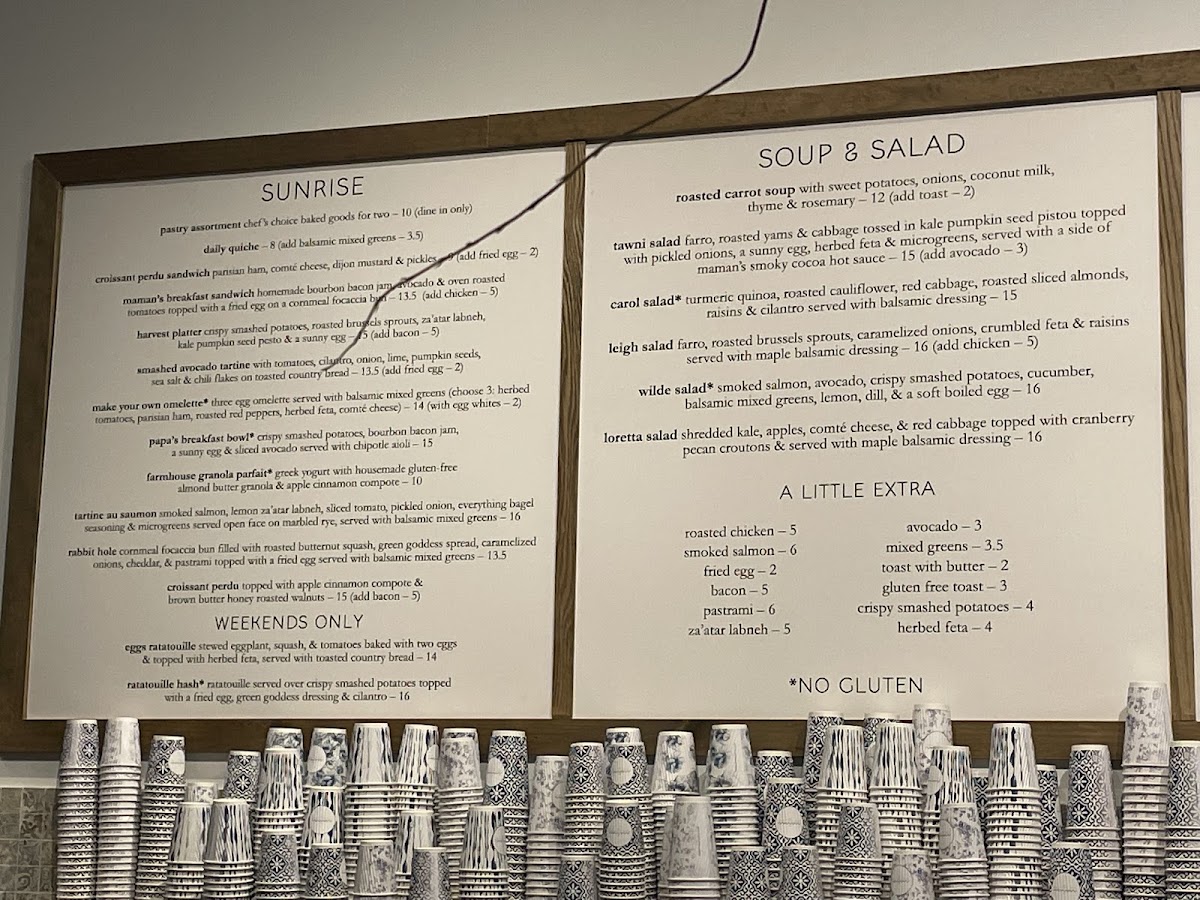 SUNRISE
pastry assortment chef's choice baked goods for two – 10 (dine in only)
daily quiche – 8 (add balsamic mixed greens – 3.5)
croissant perdu sandwich parisian ham, comté cheese, dijon mustard & pickles – 9 (add fried egg – 2)
maman's breakfast sandwich homemade bourbon bacon jam, avocado & oven roasted
tomatoes topped with a fried egg on a cornmeal focaccia bun – 13.5 (add chicken – 5)
harvest platter crispy smashed potatoes, roasted brussels sprouts, za'atar labneh,
kale pumpkin seed pesto & a sunny egg – 15 (add bacon – 5)
smashed avocado tartine with tomatoes, cilantro, onion, lime, pumpkin seeds,
sea salt & chili flakes on toasted country bread – 13.5 (add fried egg – 2)
make your own omelette* three egg omelette served with balsamic mixed greens (choose 3: herbed
tomatoes, parisian ham, roasted red peppers, herbed feta, comté cheese) – 14 (with egg whites – 2)
papa's breakfast bowl* crispy smashed potatoes, bourbon bacon jam,
a sunny egg & sliced avocado served with chipotle aioli – 15
farmhouse granola parfait* greek yogurt with housemade gluten-free
almond butter granola & apple cinnamon compote – 10
tartine au saumon smoked salmon, lemon za'atar labneh, sliced tomato, pickled onion, everything bagel
seasoning & microgreens served open face on marbled rye, served with balsamic mixed greens – 16
rabbit hole cornmeal focaccia bun filled with roasted butternut squash, green goddess spread, caramelized
onions, cheddar, & pastrami topped with a fried egg served with balsamic mixed greens – 13.5
croissant perdu topped with apple cinnamon compote &
brown butter honey roasted walnuts – 15 (add bacon – 5)
WEEKENDS ONLY
eggs ratatouille stewed eggplant, squash, & tomatoes baked with two eggs
& topped with herbed feta, served with toasted country bread – 14
ratatouille hash* ratatouille served over crispy smashed potatoes topped
with a fried egg, green goddess dressing & cilantro – 16
SOUP & SALAD
roasted carrot soup with sweet potatoes, onions, coconut milk,
thyme & rosemary – 12 (add toast – 2)
tawni salad farro, roasted yams & cabbage tossed in kale pumpkin seed pistou topped
with pickled onions, a sunny egg, herbed feta & microgreens, served with a side of
maman's smoky cocoa hot sauce – 15 (add avocado – 3)
carol salad* turmeric quinoa, roasted cauliflower, red cabbage, roasted sliced almonds,
raisins & cilantro served with balsamic dressing – 15
leigh salad farro, roasted brussels sprouts, caramelized onions, crumbled feta & raisins
served with maple balsamic dressing – 16 (add chicken – 5)
wilde salad* smoked salmon, avocado, crispy smashed potatoes, cucumber,
balsamic mixed greens, lemon, dill, & a soft boiled egg – 16
loretta salad shredded kale, apples, comté cheese, & red cabbage topped with cranberry
pecan croutons & served with maple balsamic dressing – 16
A LITTLE EXTRA
roasted chicken – 5
smoked salmon – 6
fried egg – 2
bacon – 5
pastrami – 6
za'atar labneh – 5
avocado – 3
mixed greens – 3.5
toast with butter – 2
gluten free toast – 3
crispy smashed potatoes – 4
herbed feta – 4
*NO GLUTEN